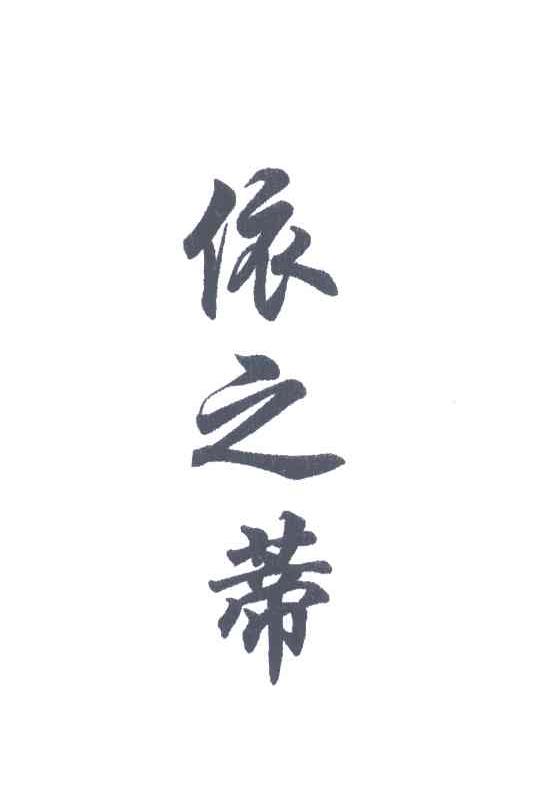 依之蒂